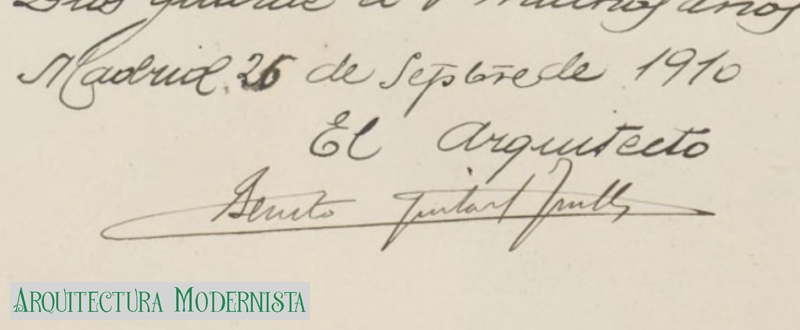 Dios guarde a V muchos años
Madrid 26 de Sepbre de 1910
El Arquitecto
Benito Guitart Trulls
ARQUITECTURA MODERNISTA